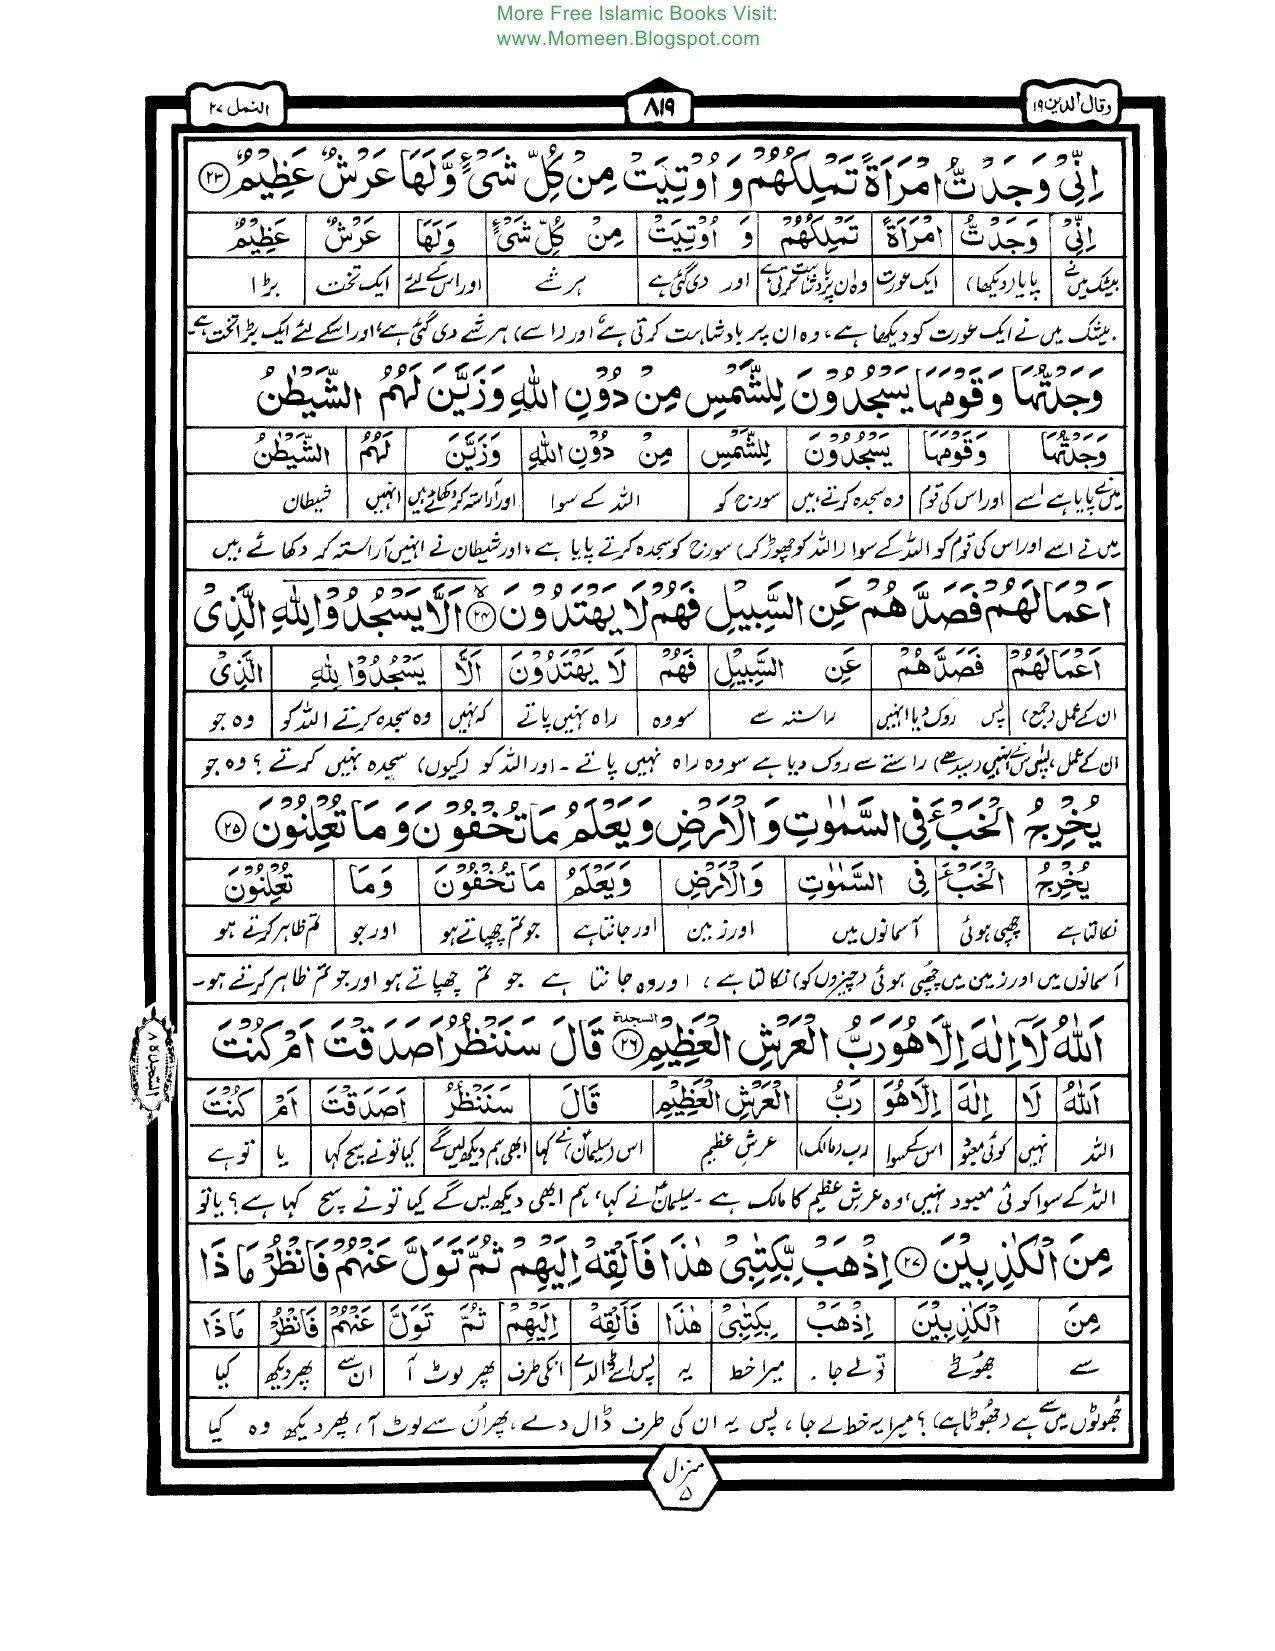 More Free Islamic Books Visit:
www.Momeen.Blogspot.com
وقال الذین ۱۹
۸۱۹
النمل ۲۷
اِنِّیْ وَجَدْتُّ امْرَاَةً تَمْلِكُهُمْ وَ اُوْتِیَتْ مِنْ كُلِّ شَیْءٍ وَّلَهَا عَرْشٌ عَظِیْمٌ ۲۳
اِنِّیْ وَجَدْتُّ امْرَاَةً تَمْلِكُهُمْ وَ اُوْتِیَتْ مِنْ كُلِّ شَیْءٍ وَلَهَا عَرْشٌ عَظِیْمٌ
بیشک میں نے پایا (دیکھا) ایک عورت وہ ان پر بادشاہت کرتی ہے اور دی گئی ہے ہر شے اور اس کے لئے ایک تخت بڑا
بیشک میں نے ایک عورت کو دیکھا ہے، وہ ان پر بادشاہت کرتی ہے اور (اسے) ہر شے دی گئی ہے، اور اسکے لئے ایک بڑا تخت ہے۔
وَجَدْتُّهَا وَ قَوْمَهَا یَسْجُدُوْنَ لِلشَّمْسِ مِنْ دُوْنِ اللّٰهِ وَ زَیَّنَ لَهُمُ الشَّیْطٰنُ
وَجَدْتُّهَا وَقَوْمَهَا یَسْجُدُوْنَ لِلشَّمْسِ مِنْ دُوْنِ اللّٰهِ وَزَیَّنَ لَهُمُ الشَّیْطٰنُ
میں نے پایا ہے اسے اور اس کی قوم وہ سجدہ کرتے ہیں سورج کو اللہ کے سوا اور آراستہ کر دکھائے ہیں انہیں شیطان
میں نے اسے اور اس کی قوم کو اللہ کے سوا (اللہ کو چھوڑ کر) سورج کو سجدہ کرتے پایا ہے، اور شیطان نے انہیں آراستہ کر دکھائے ہیں
اَعْمَالَهُمْ فَصَدَّهُمْ عَنِ السَّبِیْلِ فَهُمْ لَا یَهْتَدُوْنَ ۲۴ اَلَّا یَسْجُدُوْا لِلّٰهِ الَّذِیْ
اَعْمَالَهُمْ فَصَدَّهُمْ عَنِ السَّبِیْلِ فَهُمْ لَا یَهْتَدُوْنَ اَلَّا یَسْجُدُوْا لِلّٰهِ الَّذِیْ
ان کے عمل (جمع) پس روک دیا انہیں راستہ سے سو وہ راہ نہیں پاتے کہ نہیں وہ سجدہ کرتے اللہ کو وہ جو
ان کے عمل، پس انہیں (سیدھے) راستے سے روک دیا ہے سو وہ راہ نہیں پاتے ۔ اور اللہ کو (کیوں) سجدہ نہیں کرتے؟ وہ جو
یُخْرِجُ الْخَبْءَ فِی السَّمٰوٰتِ وَ الْاَرْضِ وَ یَعْلَمُ مَا تُخْفُوْنَ وَ مَا تُعْلِنُوْنَ ۲۵
یُخْرِجُ الْخَبْءَ فِی السَّمٰوٰتِ وَالْاَرْضِ وَیَعْلَمُ مَا تُخْفُوْنَ وَمَا تُعْلِنُوْنَ
نکالتا ہے چھپی ہوئی آسمانوں میں اور زمین اور جانتا ہے جو تم چھپاتے ہو اور جو تم ظاہر کرتے ہو
آسمانوں میں اور زمین میں چھپی ہوئی (چیزوں کو) نکالتا ہے، اور وہ جانتا ہے جو تم چھپاتے ہو اور جو تم ظاہر کرتے ہو۔
اَللّٰهُ لَاۤ اِلٰهَ اِلَّا هُوَ رَبُّ الْعَرْشِ الْعَظِیْمِ ۲۶ السجدة قَالَ سَنَنْظُرُ اَصَدَقْتَ اَمْ كُنْتَ
السجدة ۸
اَللّٰهُ لَا اِلٰهَ اِلَّا هُوَ رَبُّ الْعَرْشِ الْعَظِیْمِ قَالَ سَنَنْظُرُ اَصَدَقْتَ اَمْ كُنْتَ
اللہ نہیں کوئی معبود اس کے سوا رب (مالک) عرش عظیم اس (سلیمانؑ) نے کہا ابھی ہم دیکھ لیں گے کیا تو نے سچ کہا یا تو ہے
اللہ کے سوا کوئی معبود نہیں، وہ عرش عظیم کا مالک ہے ۔ سلیمانؑ نے کہا، ہم ابھی دیکھ لیں گے کیا تو نے سچ کہا ہے؟ یا تو
مِنَ الْكٰذِبِیْنَ ۲۷ اِذْهَبْ بِّكِتٰبِیْ هٰذَا فَاَلْقِهْ اِلَیْهِمْ ثُمَّ تَوَلَّ عَنْهُمْ فَانْظُرْ مَا ذَا
مِنَ الْكٰذِبِیْنَ اِذْهَبْ بِكِتٰبِیْ هٰذَا فَاَلْقِهْ اِلَیْهِمْ ثُمَّ تَوَلَّ عَنْهُمْ فَانْظُرْ مَاذَا
سے جھوٹے تو لے جا میرا خط یہ پس اسے ڈالدے انکی طرف پھر لوٹ آ ان سے پھر دیکھ کیا
جھوٹوں میں سے ہے (جھوٹا ہے)؟ میرا یہ خط لے جا، پس یہ ان کی طرف ڈال دے، پھر ان سے لوٹ آ، پھر دیکھ وہ کیا
منزل ۵